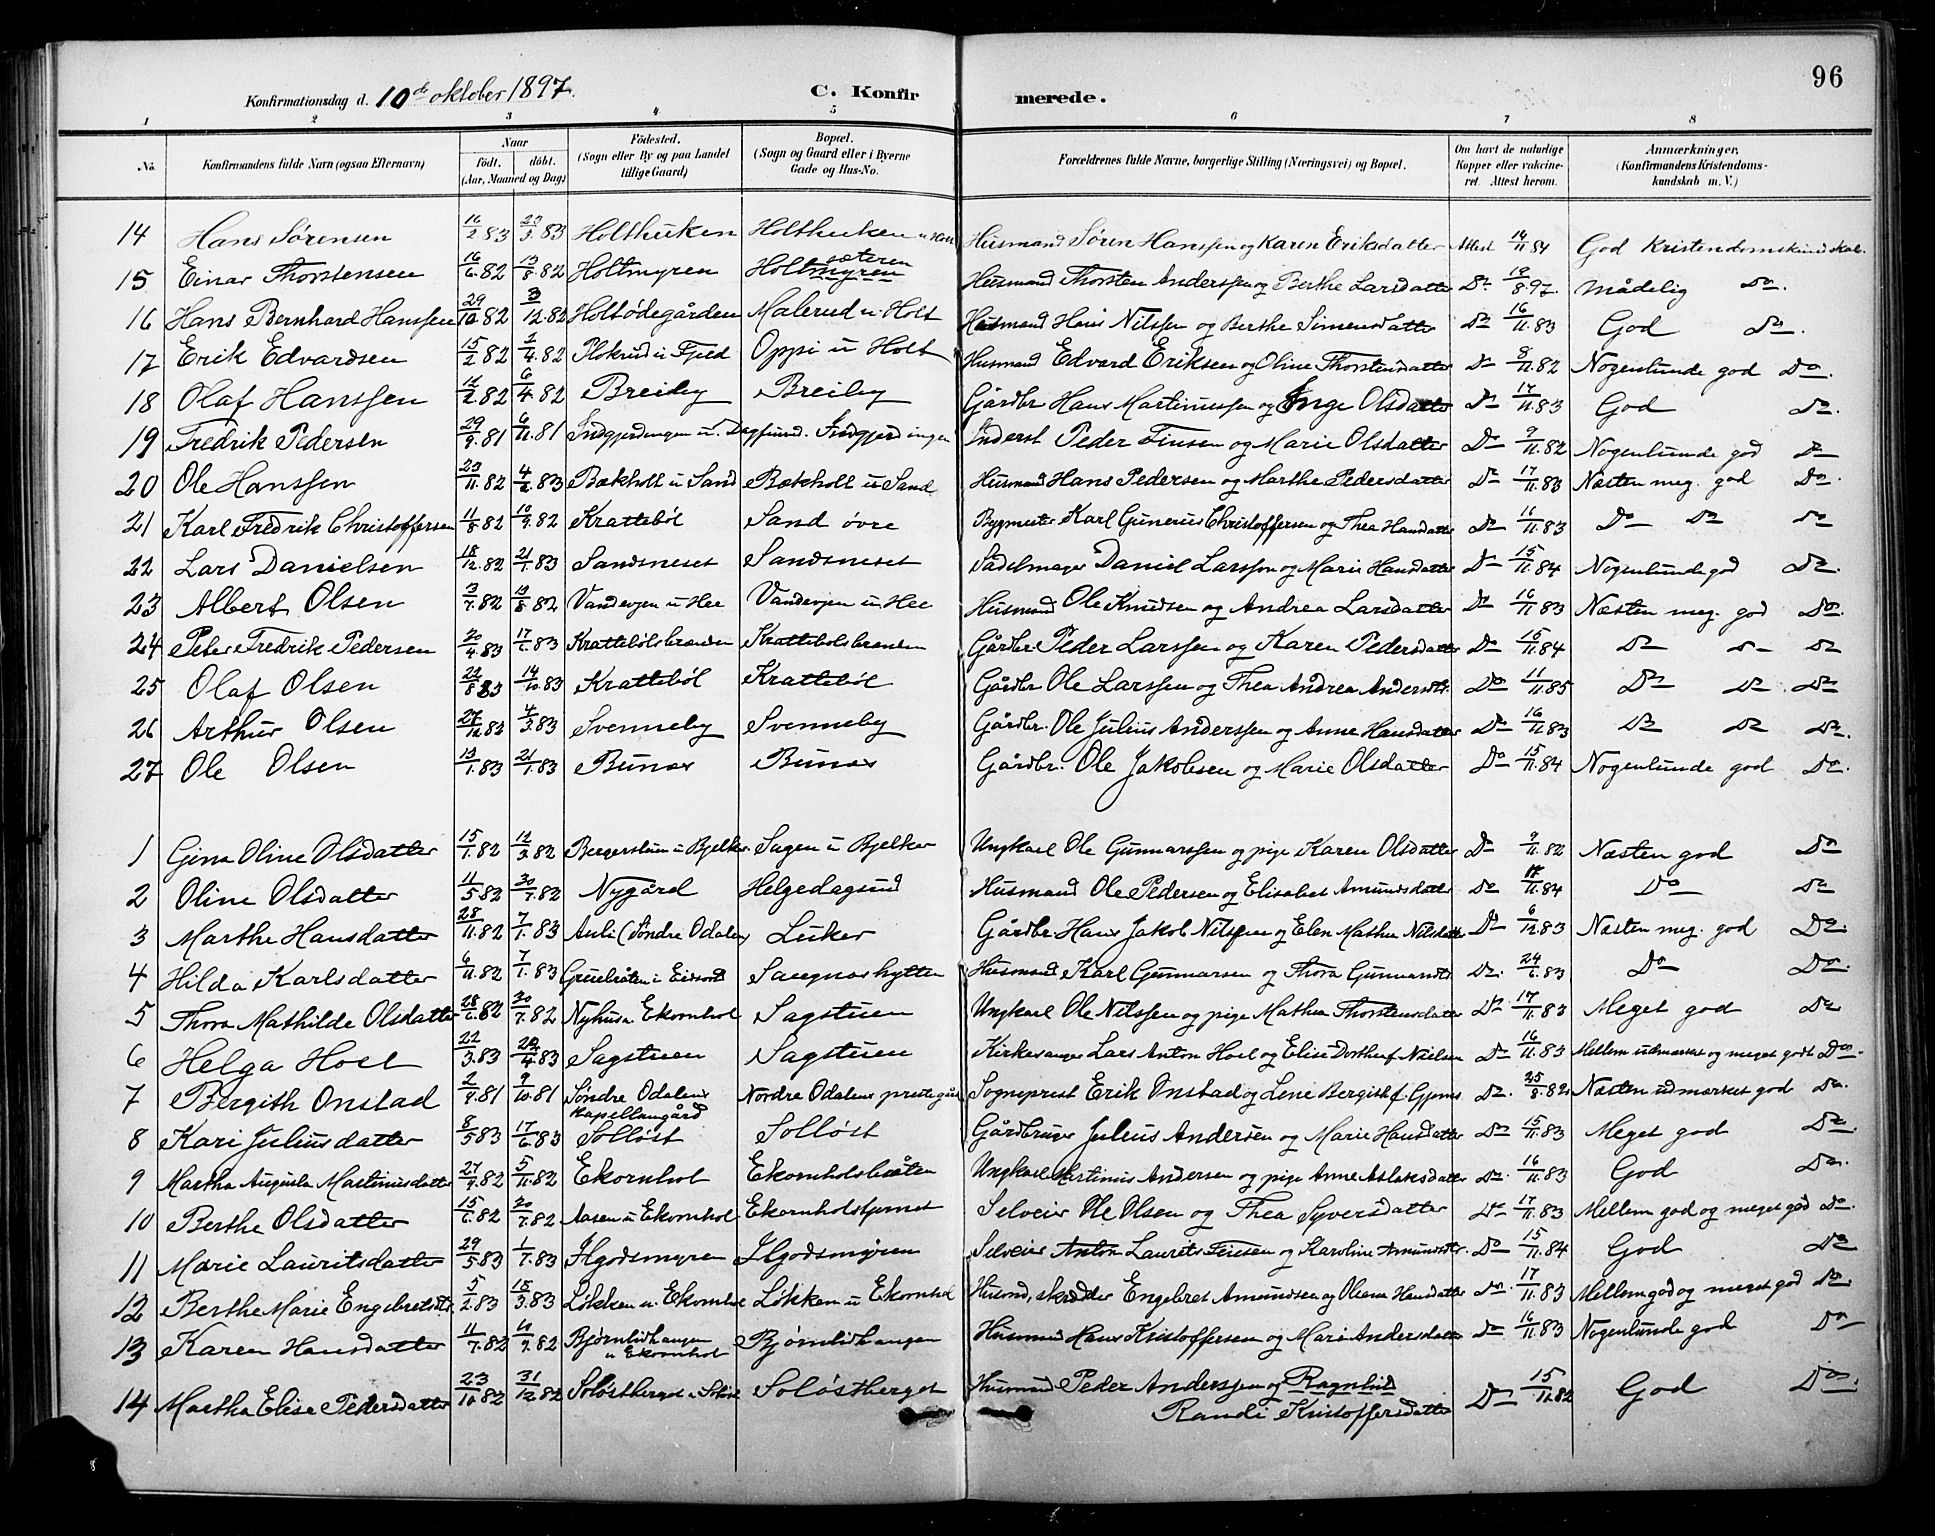 96
Konfirmationsdag d. 10de oktober 1897.
C. Konfirmerede.
1 2 3 4 5 6 7 8
No. Konfirmandens fulde Navn (ogsaa Efternavn) Naar födt. döbt. (Aar, Maaned og Dag) Födested. (Sogn eller By og paa Landet tillige Gaard) Bopæl. (Sogn og Gaard eller i Byerne Gade og Hus-No. Forældrenes fulde Navne, borgerlige Stilling (Næringsvei) og Bopæl. Om havt de naturlige Kopper eller vaccineret. Attest herom. Anmærkninger. (Konfirmandens Kristendomskundskab m. V.)
14 Hans Sörensen 16/2 83 Holthuken Holthuken u Holt Husmand Sören Hanssen og Karen Eriksdatter Attest 14/11 84 God Kristendomskundskab
15 Einar Thorstensen 16/6 82 13/8 82 Holtmyren Holtsæteren Husmand Thorsten Anderssen og Berthe Larsdatter Do 8.97. Mådelig Do.
16 Hans Bernhard Hanssen 29/10 82 3/12 82 Holtødegården Malerud u. Holt Husmand Hans Nilssen og Berthe Simensdatter Do 16/11 83 God Do.
17 Erik Edvardsen 15/2 82 2/4 82 Plokrud u Fjeld Oppi u Holt Husmand Edvard Eriksen og Oline Thorstensdatter Do 8/11 82 Nogenlunde god Do.
18 Olaf Hanssen 82 6/4 82 Breiby Breiby Gårdbr. Hans Martinussen og Inge Olsdatter Do 17/11 83 God Do.
19 Fredrik Pedersen 29/9 81 6/11 81 Indgjerdingen u. Dagsund. Indgjerdingen Inderst Peder Finsen og Marie Olsdatter Do 9/11 82 Nogenlunde god Do
20 Ole Hanssen 23/11 82 4/2 83 Bækholt u Sand Bækholt u Sand Husmand Hans Pedersen og Marthe Pedersdatter Do 17/11 83 Næsten meg. god Do.
21 Karl Fredrik Christoffersen 11/8 82 10/9 82 Krattebøl Sand øvre Bygmester Karl Gunerius Christoffersen og Thea Hansdatter Do 16/11 83 Do Do Do
22 Lars Danielsen 18/12 82 21/1 83 Sandsneset Sandsneset Sadelmager Daniel Larsson og Marie Hansdatter Do 15/11 84 Nogenlunde god Do.
23 Albert Olsen 3/7 82 13/8 82 Vandvejen u Hee Vandvejen u Hee Husmand Ole Knudsen og Andrea Larsdatter Do 16/11 83 Næsten meg. god Do.
24 Peter Fredrik Pedersen 20/4 83 17/6 83 Krattebölsbraaden Krattebolsbraaden Gårdbr. Peder Larssen og Karen Pedersdatter Do 15/11 84 Do Do Do
25 Olaf Olsen 22/8 83 14/10 83 Krattebøl Krattebøl Gårdbr Ole Larssen og Thea Andrea Andersdtr. Do 11/11 85 Do Do Do
26 Arthur Olsen 27/12 82 4/3 83 Svenneby Svenneby Gårdbr. Ole Julius Anderssen og Anne Hansdatter Do 16/12 83 Do Do Do.
27 Ole Olsen 13/1 83 21/1 83 Bunes Bunes Gårdbr. Ole Jakobsen og Marie Olsdatter Do 15/11 84 Nogenlunde god Do.
1 Gina Oline Olsdatter 15/1 82 12/3 82 Bergerslum u Bjelker Sagen u Bjelker Ungkarl Ole Gunnarssen og pige Karen Olsdatter Do 9/11 82 Næsten god Do
2 Oline Olsdatter 11/5 82 30/7 82 Nygård Helgedagsund Husmand Ole Pedersen og Elisabet Amundsdatter Do 17/11 84 Do Do
3 Marthe Hansdatter 28/11 82 7/1 83 Auli (Söndre Odalen) Luker Gårdbr. Hans Jakob Nilssen og Elen Mathea Nilsdatter Do 6/12 83 Næsten meg. god Do.
4 Hilda Karlsdatter 6/11 82 7/1 83 Sangnashytten Husmand Karl Gunnarsen og Thora Gunnarsdtr Do. 24/6 83 Do Do.
5 Thora Mathilde Olsdatter 28/6 82 30/7 82 Nyhus u Ekornhol Sagstuen Ungkarl Ole Nilssen og pige Mathea Thorstensdatter Do 17/11 83 Meget god Do
6 Helga Hoel 22/3 83 4 83 Sagstuen Sagstuen Kirkesanger Lars Anton Hoel og Elise Dorthea f. Nielsen Do 16/11 83 Mellem udmærket og meget godt Do.
7 Bergith Onstad 2/9 81 9/10 81 Søndre Odalens kapellangård Nordre Odalens prestegård Sogneprest Erik Onstad og Lene Bergith f. Gjems Do. 25/8 82 Næsten udmærket god Do.
8 Kari Juliusdatter 8/5 83 17/6 83 Solløst Solløst Gårdbruger Julius Andersen og Marie Hansdatter Do 15/11 83 Meget god Do.
9 Martha Augusta Martinusdatter 27/9 82 5/11 82 Ekornhol Ekornholsbråten Ungkarl Martinus Andersen og pige Anne Aslaksdatter Do. 16/11 83 God Do.
10 Berthe Olsdatter 15/6 82 30/7 82 Aasen u Ekornhol Ekornholstjernet Selveier Ole Olsen og Thea Syversdatter Do 17/11 83 Mellem god og meget god Do.
11 Marie Lauritsdatter 29/5 83 1/7 83 Ilgodsmyren Ilgodsmyren Selveier Anton Laurits Finsen og Karoline Amundsdtr. Do 15/11 84 God Do
12 Berthe Marie Engebretsdtr 5/2 83 18/3 83 Løkken u. Ekornhol Løkken u Ekornhol Husmd, skrædder Engebret Amundsen og Oleana Hansdatter Do. 17/11 83 Mellem god og meget god Do.
13 Karen Hansdatter 11/7 82 10/9 82 Bjørnlidhaugen u Ekornhol Bjørnlidhaugen Husmand Hans Kristoffersen og Mari Andersdatter Do 16/11 83 Nogenlunde god Do
14 Martha Elise Pedersdatter 23/10 82 31/12 82 Soløstberget u Soløst Soløstberget Husmand Peder Anderssen og Ragnhild Do 15/12 82 God Do.
Randi Kristoffersdatter